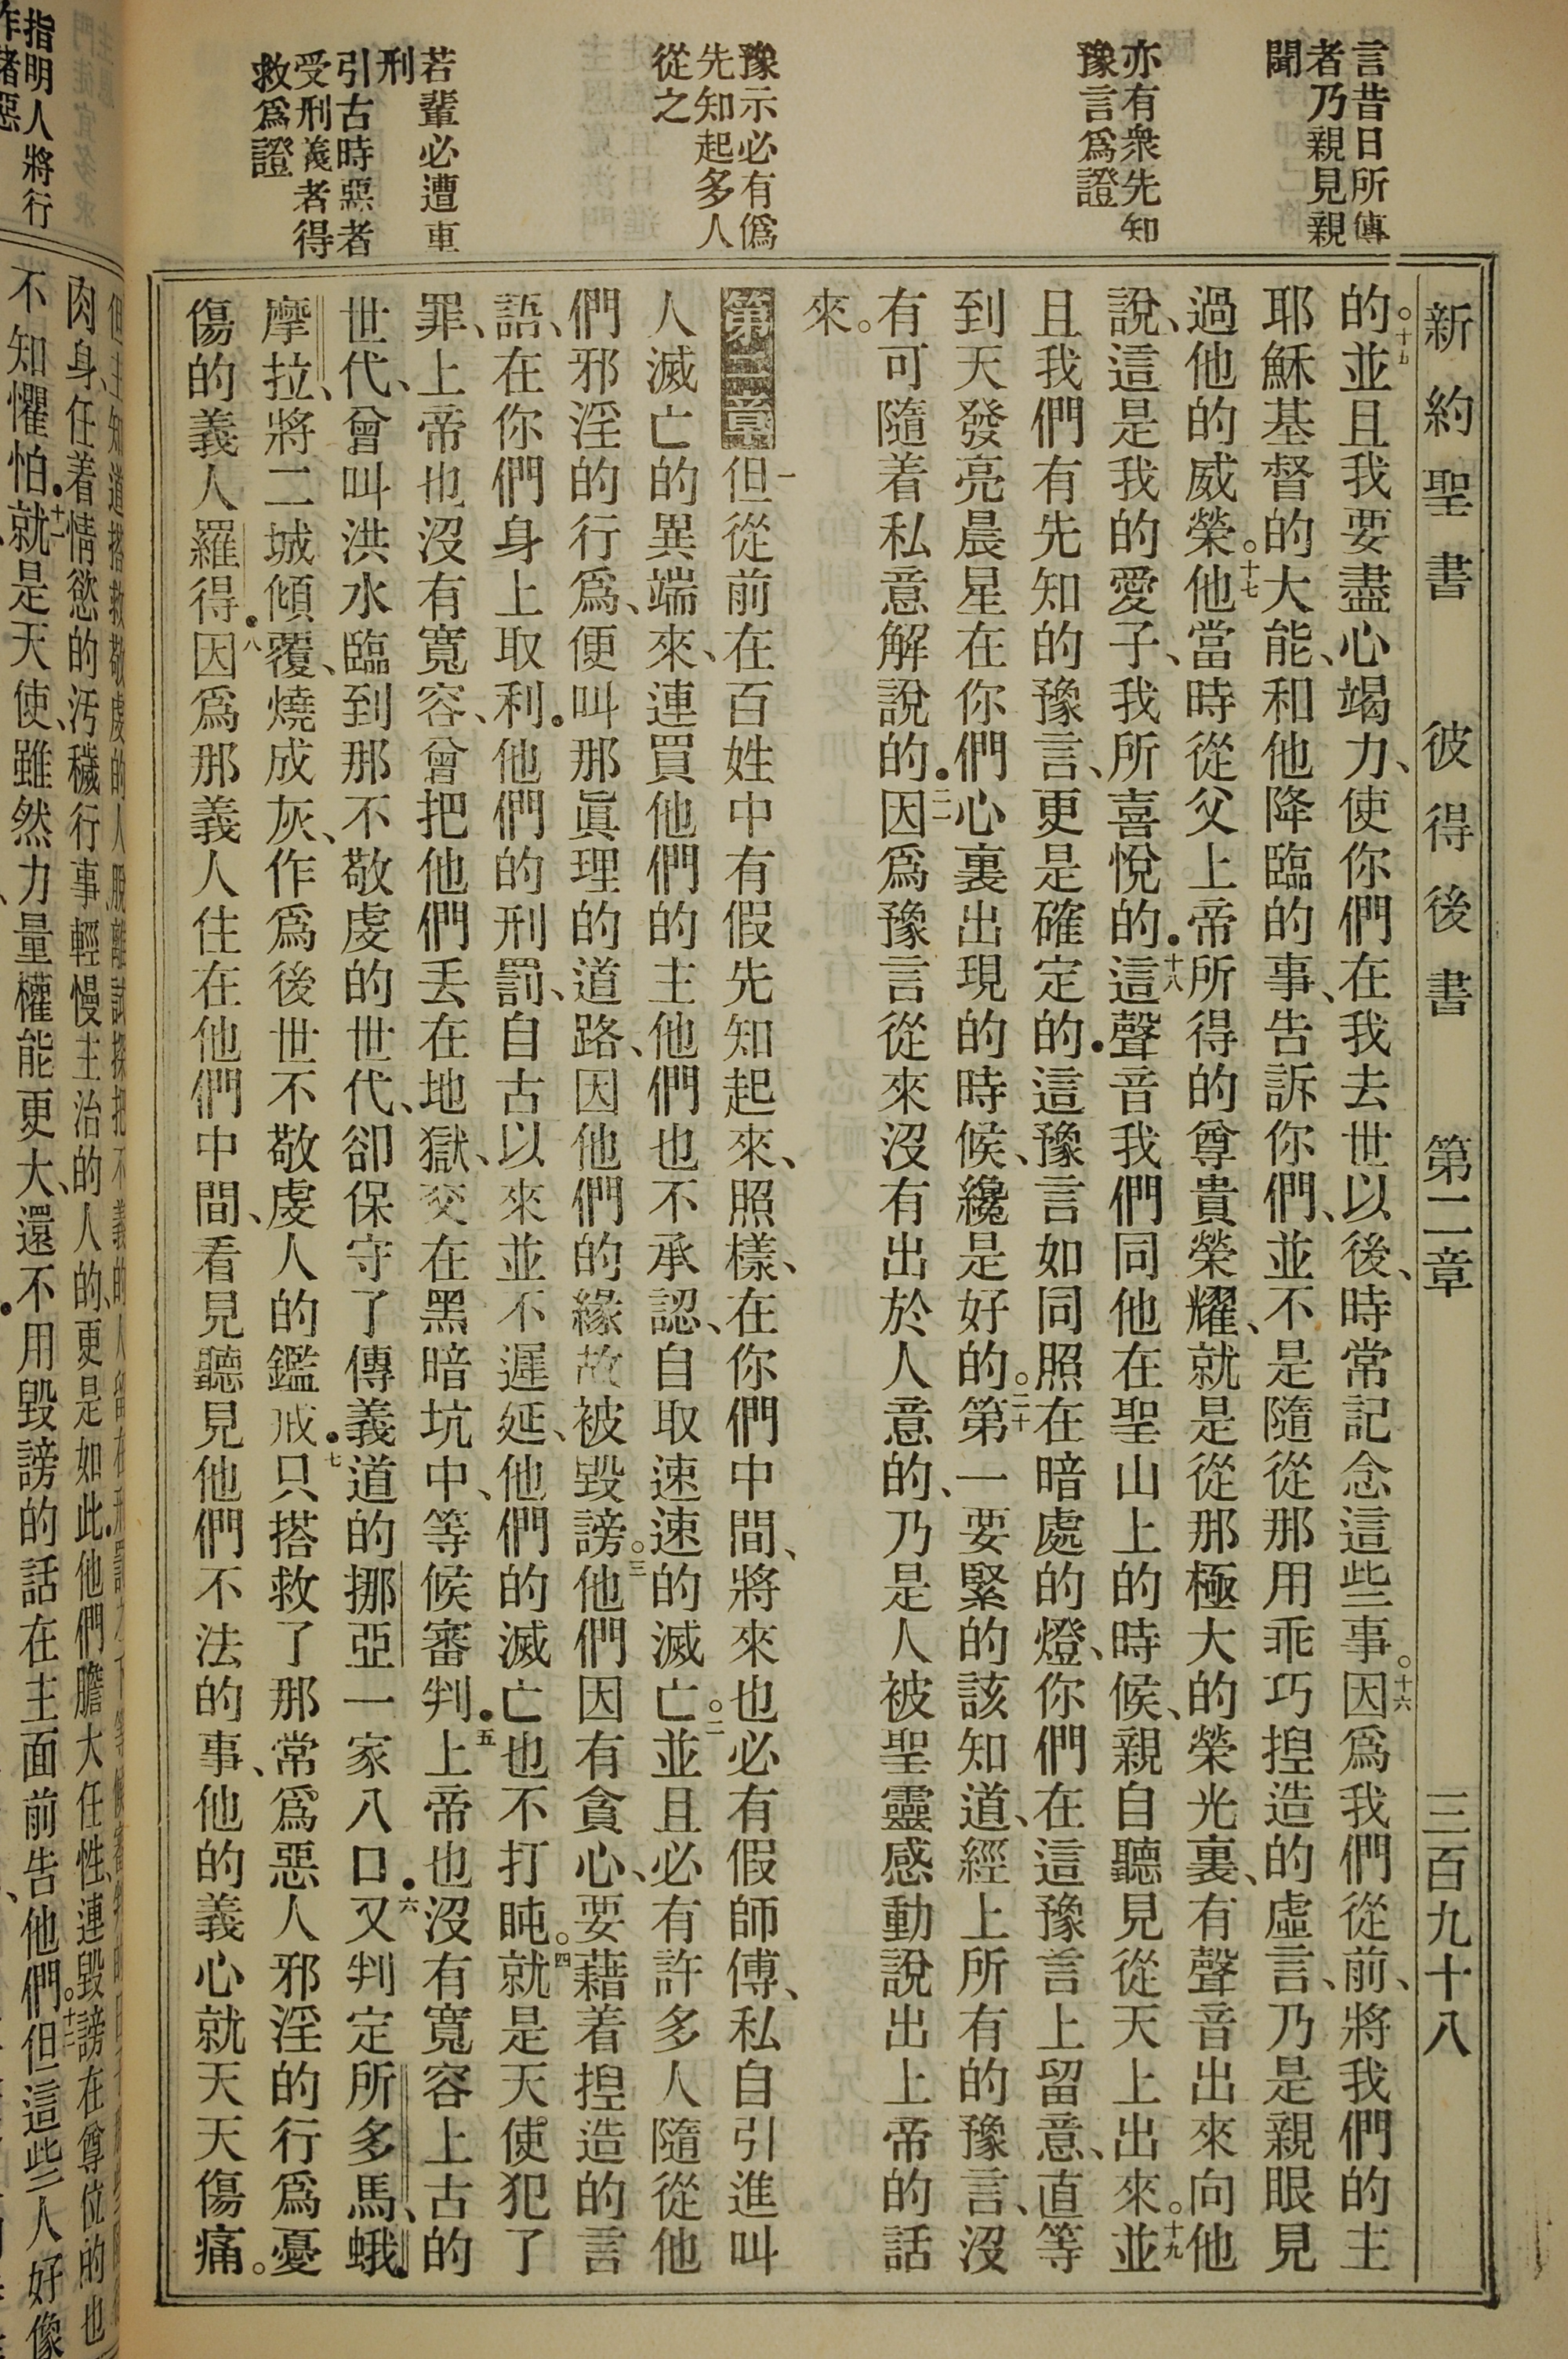 新約聖書 彼得後書 第二章 三百九十八
言昔日所傳
者乃親見親
聞
亦有衆先知
豫言爲證
豫示必有僞
先知起多人
從之
若輩必遭重
刑
引古時惡者
受刑義者得
救爲證
的。十五並且我要盡心竭力、使你們在我去世以後、時常記念這些事。十六因爲我們從前、將我們的主
耶穌基督的大能、和他降臨的事、告訴你們、並不是隨從那用乖巧揑造的虛言、乃是親眼見
過他的威榮。十七他當時從父上帝所得的尊貴榮耀、就是從那極大的榮光裏、有聲音出來向他
說、這是我的愛子、我所喜悅的．十八這聲音我們同他在聖山上的時候、親自聽見從天上出來。十九並
且我們有先知的豫言、更是確定的．這豫言如同照在暗處的燈、你們在這豫言上留意、直等
到天發亮晨星在你們心裏出現的時候、纔是好的。二十第一要緊的該知道、經上所有的豫言、沒
有可隨着私意解說的．二一因爲豫言從來沒有出於人意的、乃是人被聖靈感動說出上帝的話
來。
第二章 一但從前在百姓中有假先知起來、照樣、在你們中間、將來也必有假師傅、私自引進叫
人滅亡的異端來、連買他們的主他們也不承認、自取速速的滅亡。二並且必有許多人隨從他
們邪淫的行爲、便叫那眞理的道路、因他們的緣故被毀謗。三他們因有貪心、要藉着揑造的言
語、在你們身上取利．他們的刑罰、自古以來並不遲延、他們的滅亡也不打盹。四就是天使犯了
罪、上帝也沒有寬容、曾把他們丟在地獄、交在黑暗坑中、等候審判．五上帝也沒有寬容上古的
世代、曾叫洪水臨到那不敬虔的世代、卻保守了傳義道的挪亞一家八口．六又判定所多馬、蛾
摩拉、將二城傾覆、燒成灰、作爲後世不敬虔人的鑑戒．七只搭救了那常爲惡人邪淫的行爲憂
傷的義人羅得．八因爲那義人住在他們中間、看見聽見他們不法的事、他的義心就天天傷痛。
指明人將行
作諸惡
但主知道搭救敬虔的人脫離試探把不義的人留在刑罰之下等候審判
肉身、任着情慾的汚穢行事輕慢主治的人的、更是如此．他們膽大任性、連毀謗在尊位的也
不知懼怕．十一就是天使、雖然力量權能更大、還不用毀謗的話在主面前告他們。十二但這些人好像